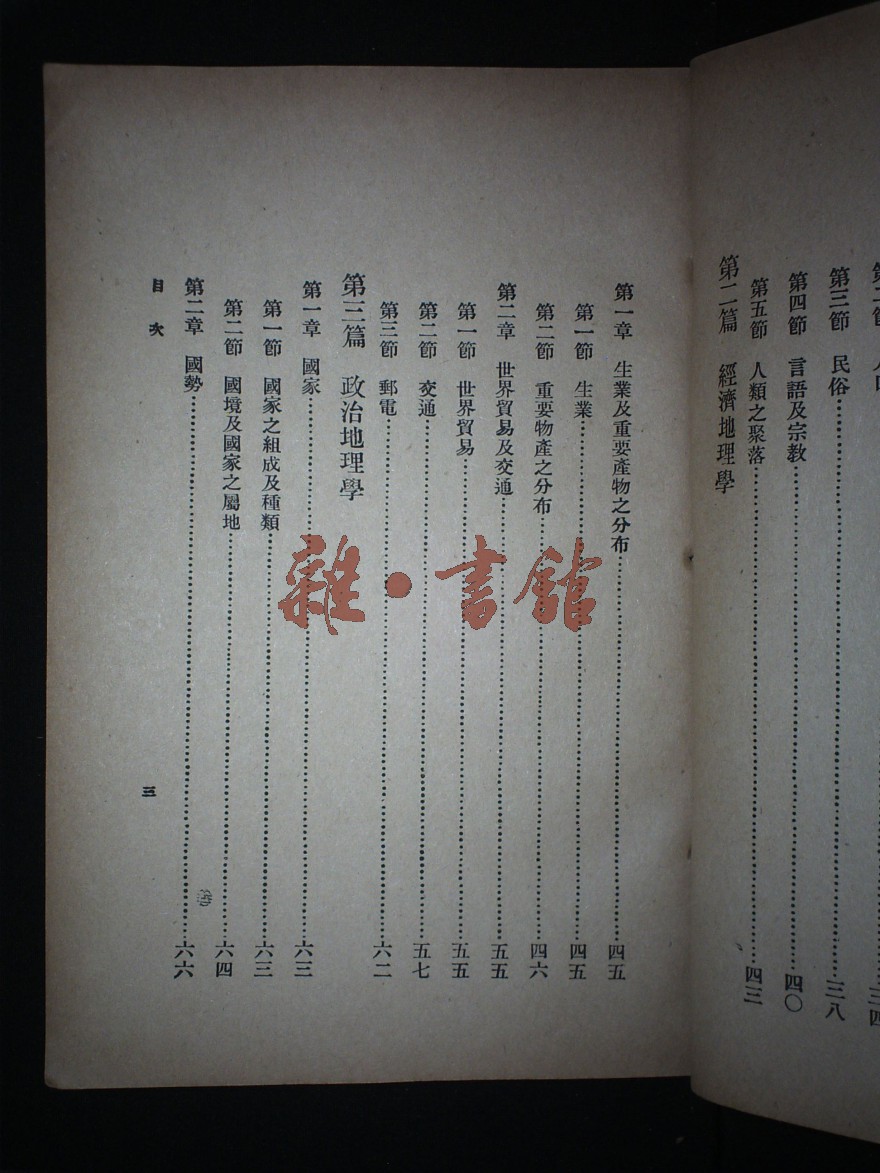 第三節 民俗……三八
第四節 言語及宗教……四〇
第五節 人類之聚落……四三
第二篇 經濟地理學
第一章 生業及重要產物之分布……四五
第一節 生業……四五
第二節 重要物產之分布……四六
第二章 世界貿易及交通……五五
第一節 世界貿易……五五
第二節 交通……五七
第三節 郵電……六二
第三篇 政治地理學
第一章 國家……六三
第一節 國家之組成及種類……六三
第二節 國境及國家之屬地……六四
第二章 國勢……六六
目次
三
雜·書館